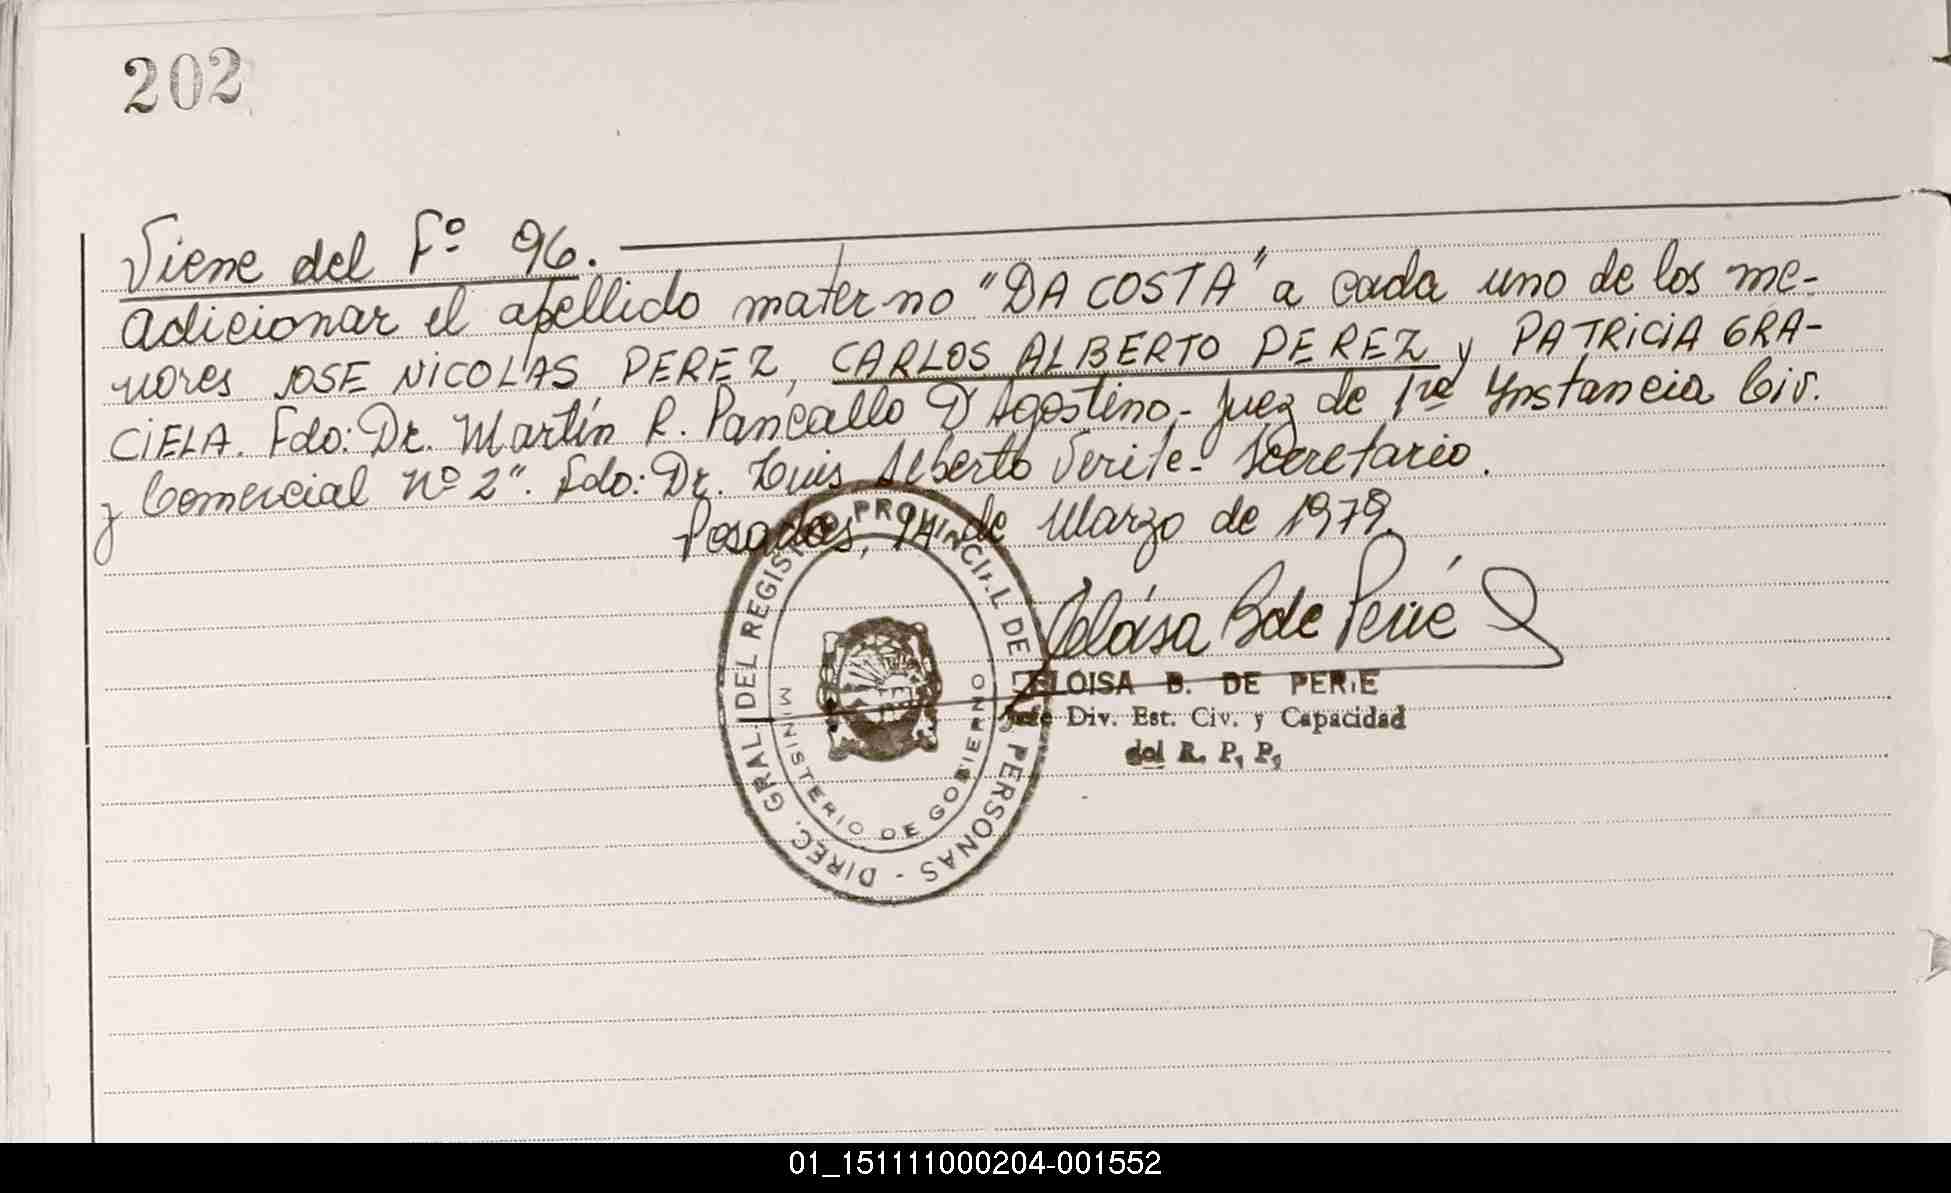 202
Viene del Fº 96.
adicionar el apellido materno "DA COSTA" a cada uno de los me-
nores JOSE NICOLAS PEREZ, CARLOS ALBERTO PEREZ y PATRICIA GRA-
CIELA. Fdo: Dr. Martín R. Pancallo D'Agostino - Juez de 1ra Instancia Civ.
y Comercial Nº 2". Fdo: Dr. Luis Alberto Verite - Secretario.
Posadas, 14 de Marzo de 1979.
Eloísa B de Perié
ELOISA B. DE PERIE
Jefe Div. Est. Civ. y Capacidad
del R. P. P.
DIREC. GRAL. DEL REGISTRO PROVINCIAL DE LAS PERSONAS -
MINISTERIO DE GOBIERNO
01_151111000204-001552